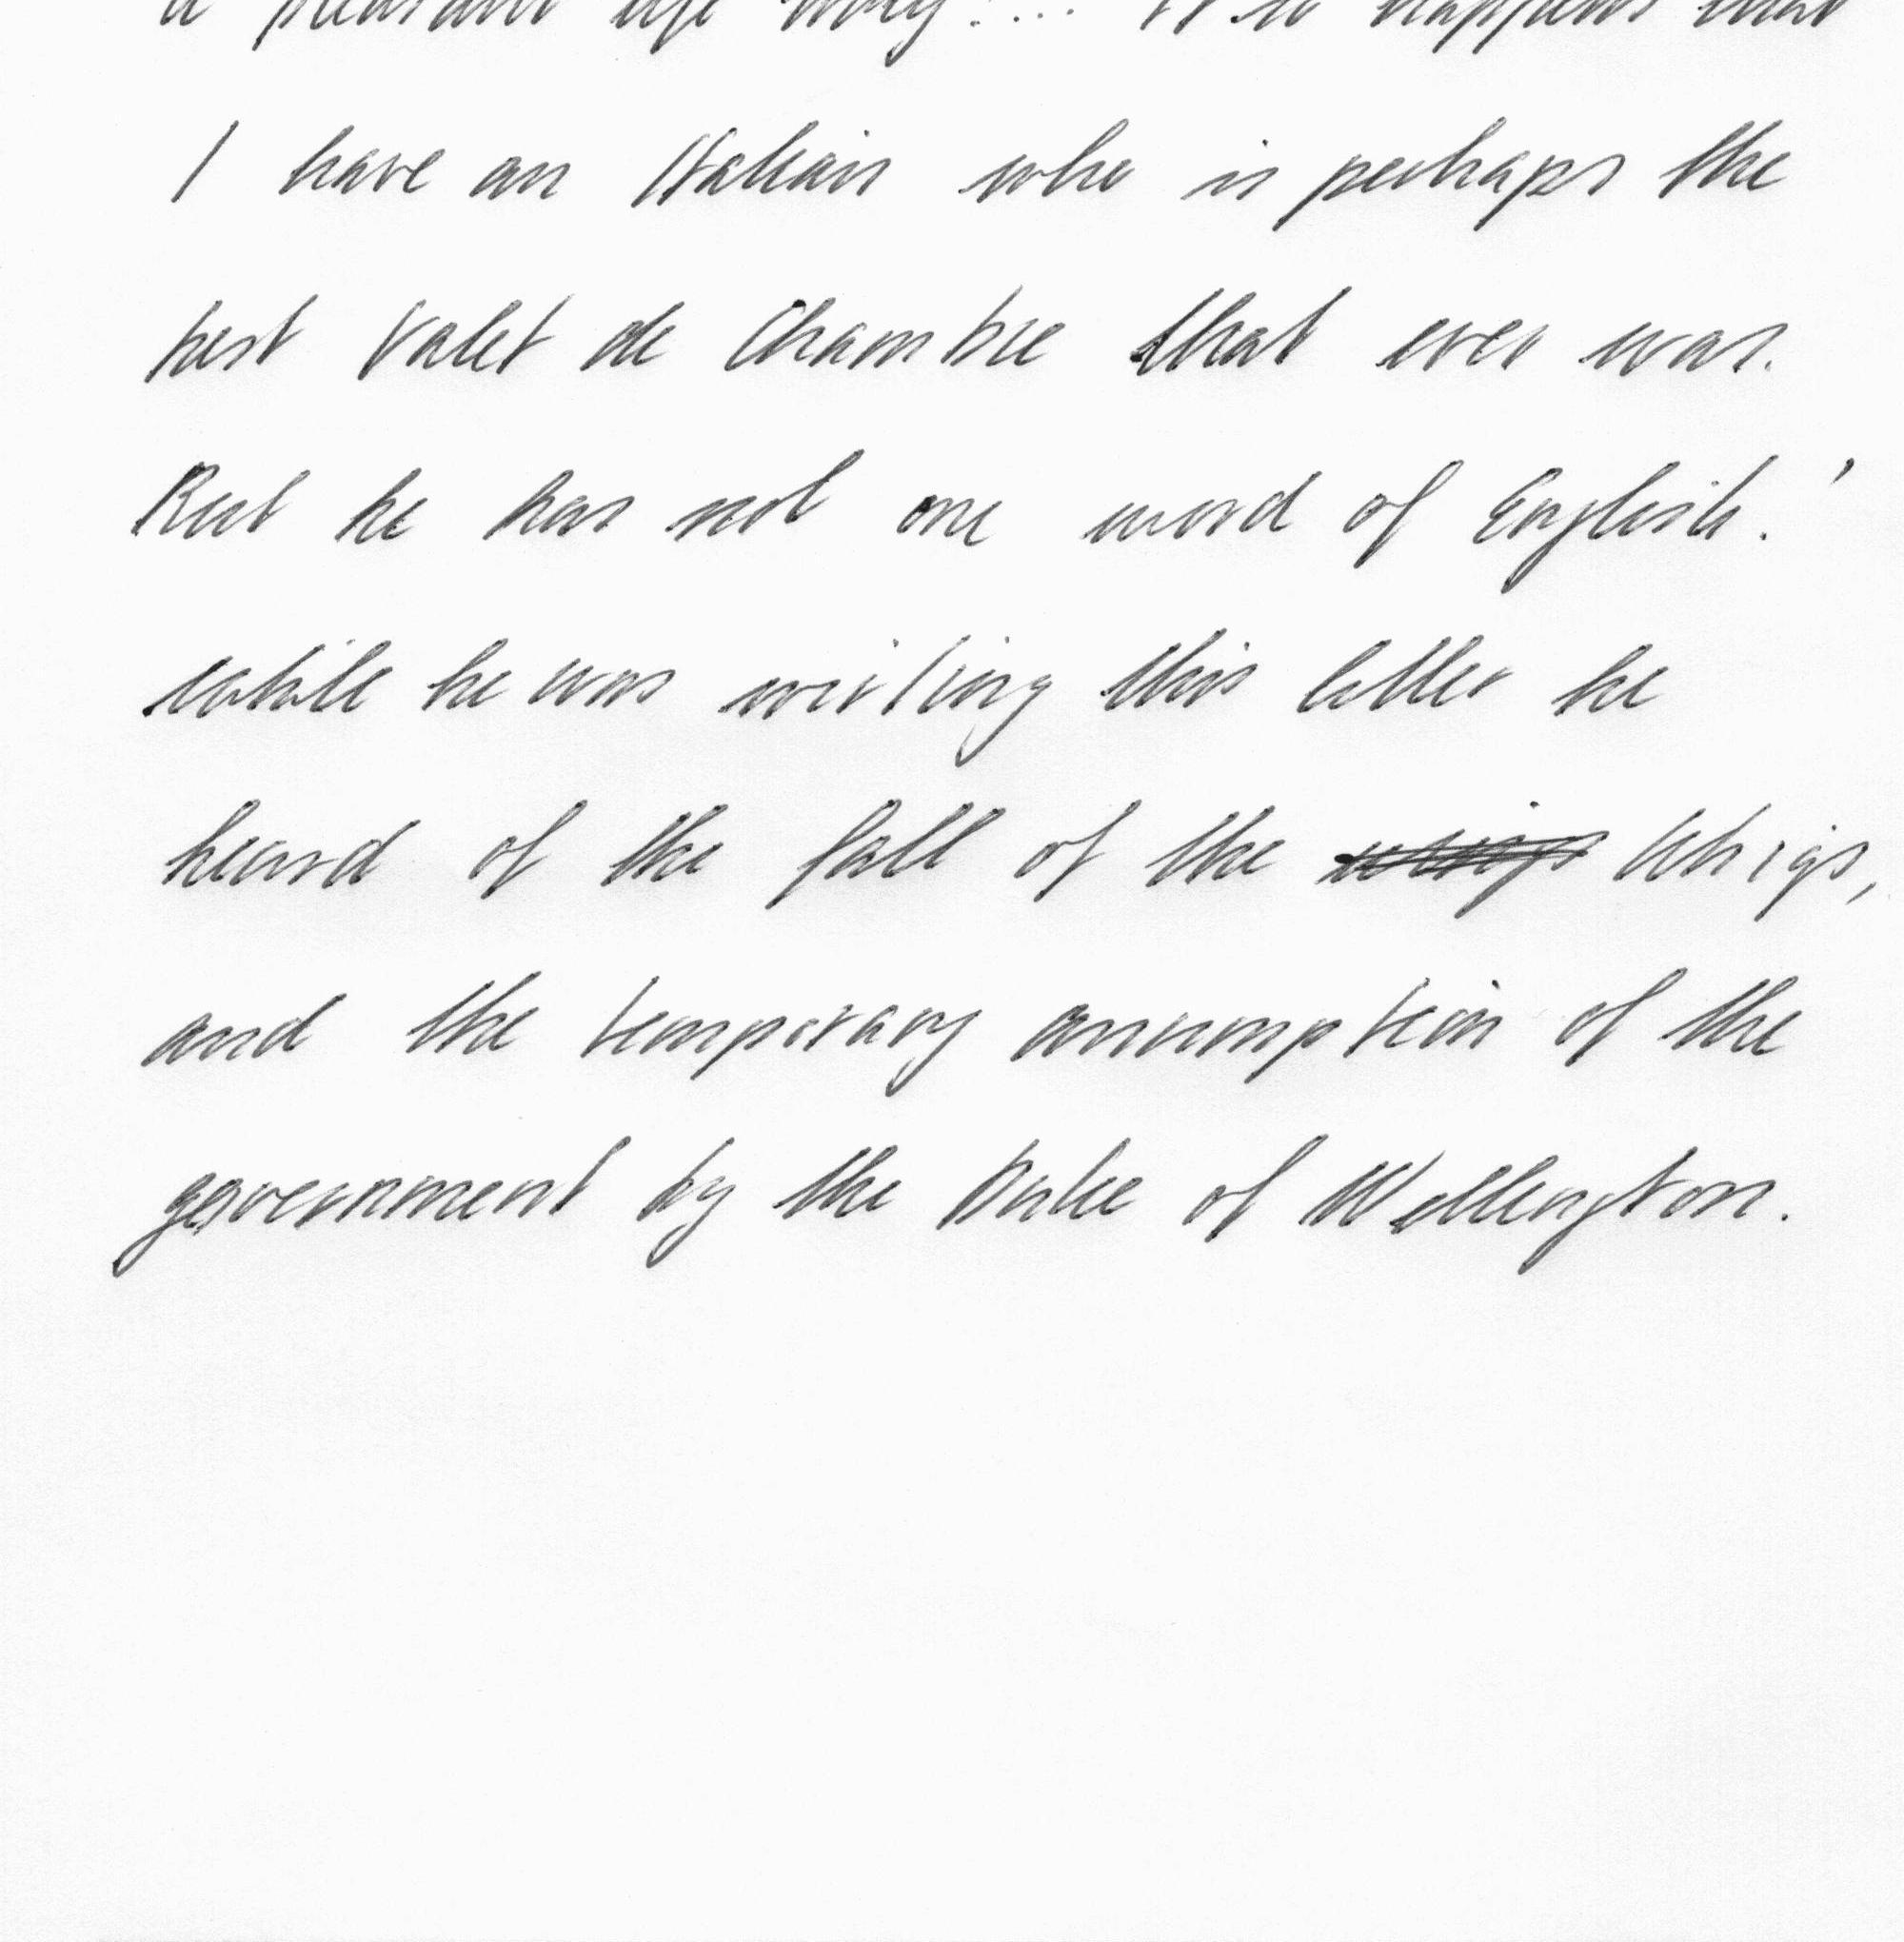 a pleasant life truly! ... It so happens that
I have an Italian who is perhaps the
best Valet de Chambre that ever was.
But he has not one word of English.'
while he was writing this letter he
heard of the fall of the Whigs,
and the temporary assumption of the
government by the Duke of Wellington.